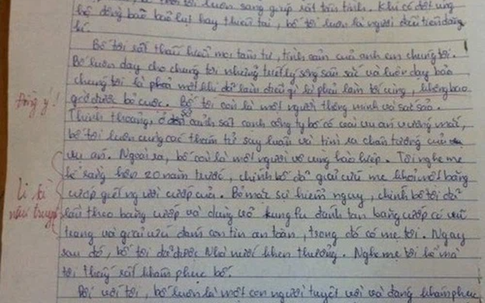 tôi luôn sang giúp rất tận tình. Khi có đợt ủng
hộ đồng bào bão lụt hay thiên tai, bố tôi luôn là người đầu tiên đóng
Bố tôi rất thấu hiểu mọi tâm tư, tình cảm của anh em chúng tôi.
Bố luôn dạy cho chúng tôi những triết lý sống sâu sắc và luôn dạy bảo
chúng tôi là phải một khi đã làm điều gì là phải làm tới cùng, không bao
giờ được bỏ cuộc. Bố tôi còn là một người thông minh và sắc sảo.
Đóng ý!
Thỉnh thoảng, ở sở cảnh sát cạnh công ty bố có các vụ án vướng mắc,
bố tôi luôn cùng các thám tử suy luận và tìm ra chân tướng của
vụ án. Ngoài ra, bố còn là một người vô cùng hào hiệp. Tôi nghe mẹ
kể rằng hơn 20 năm trước, chính bố đã giải cứu mẹ khỏi một băng
cướp giết người cướp của. Bỏ mặc sự hiểm nguy, chính bố tôi đã
Li kì
như truyện
lần theo băng cướp và dùng võ kungfu đánh tan băng cướp có vũ
trang và giải cứu đám con tin an toàn, trong đó có mẹ tôi. Ngay
sau đó, bố tôi đã được Nhà nước khen thưởng. Nghe mẹ tôi kể mà
tôi thấy rất khâm phục bố.
Đối với tôi, bố luôn là một con người tuyệt vời và đáng khâm phục